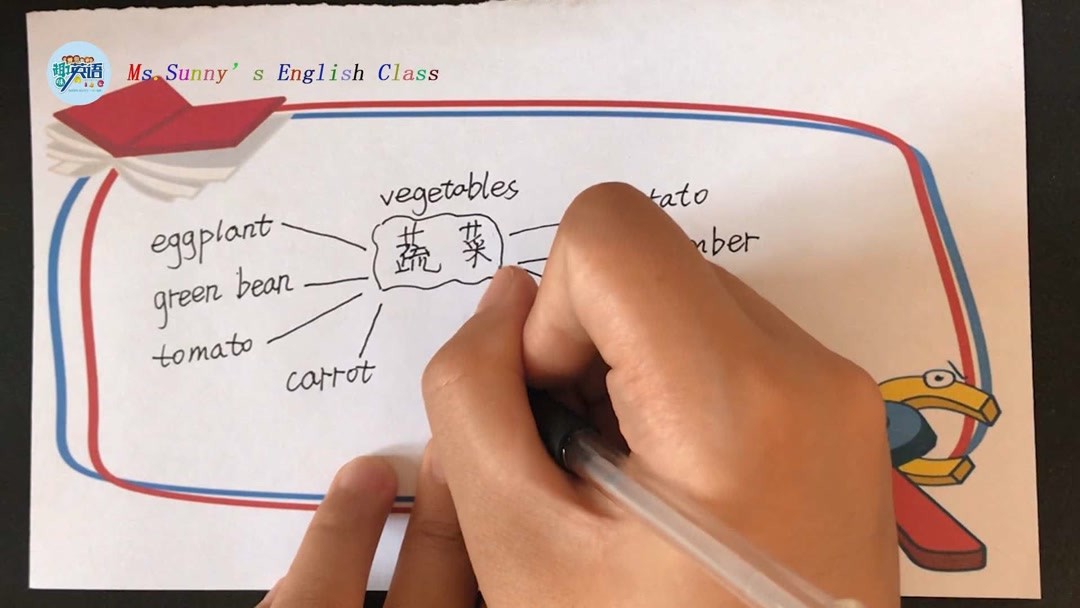 趣英语
Ms.Sunny’s English Class
vegetables
蔬菜
eggplant
green bean
tomato
carrot
tato
mber